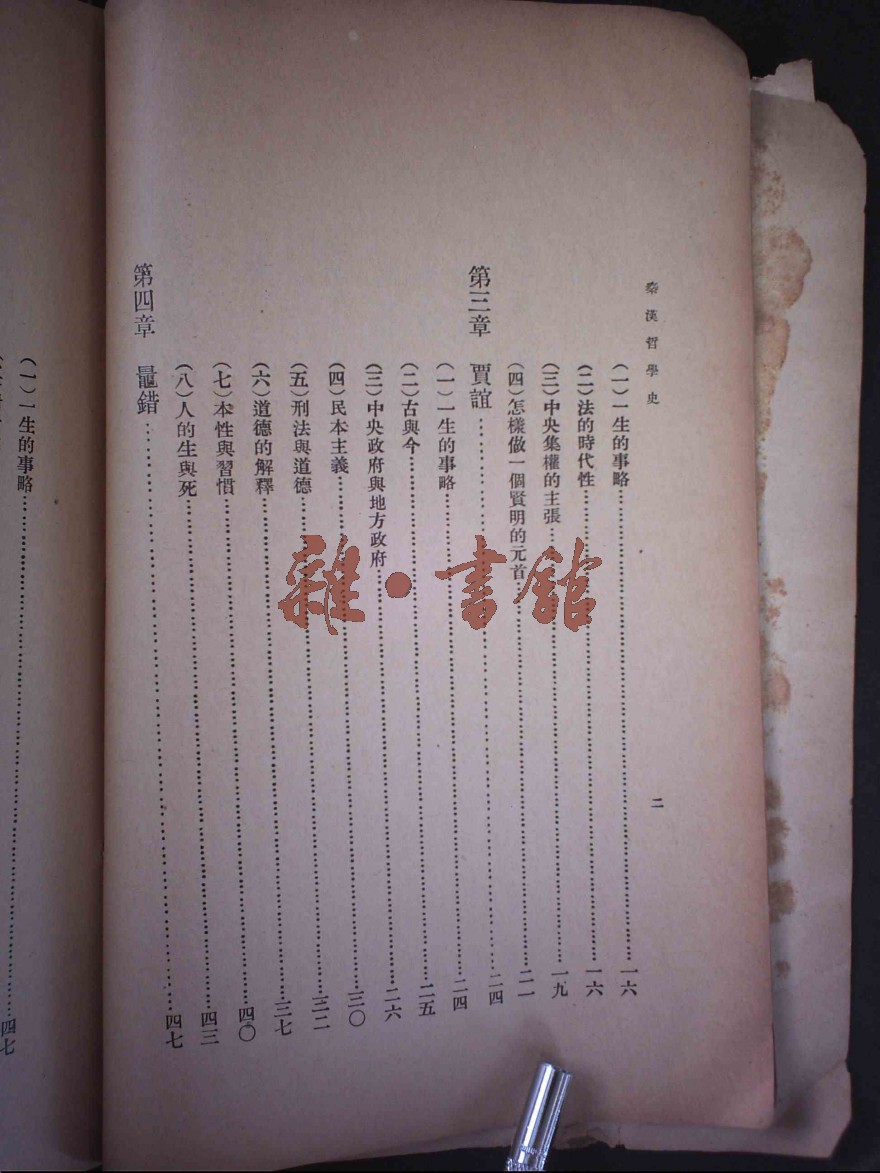 秦漢哲學史
二
(一)一生的事略……一六
(二)法的時代性……一六
(三)中央集權的主張……一九
(四)怎樣做一個賢明的元首……二一
第三章 賈誼……二四
(一)一生的事略……二四
(二)古與今……二五
(三)中央政府與地方政府……二六
(四)民本主義……三〇
(五)刑法與道德……三二
(六)道德的解釋……三七
(七)本性與習慣……四〇
(八)人的生與死……四三
第四章 鼂錯……四七
(一)一生的事略……四七
雜·書館